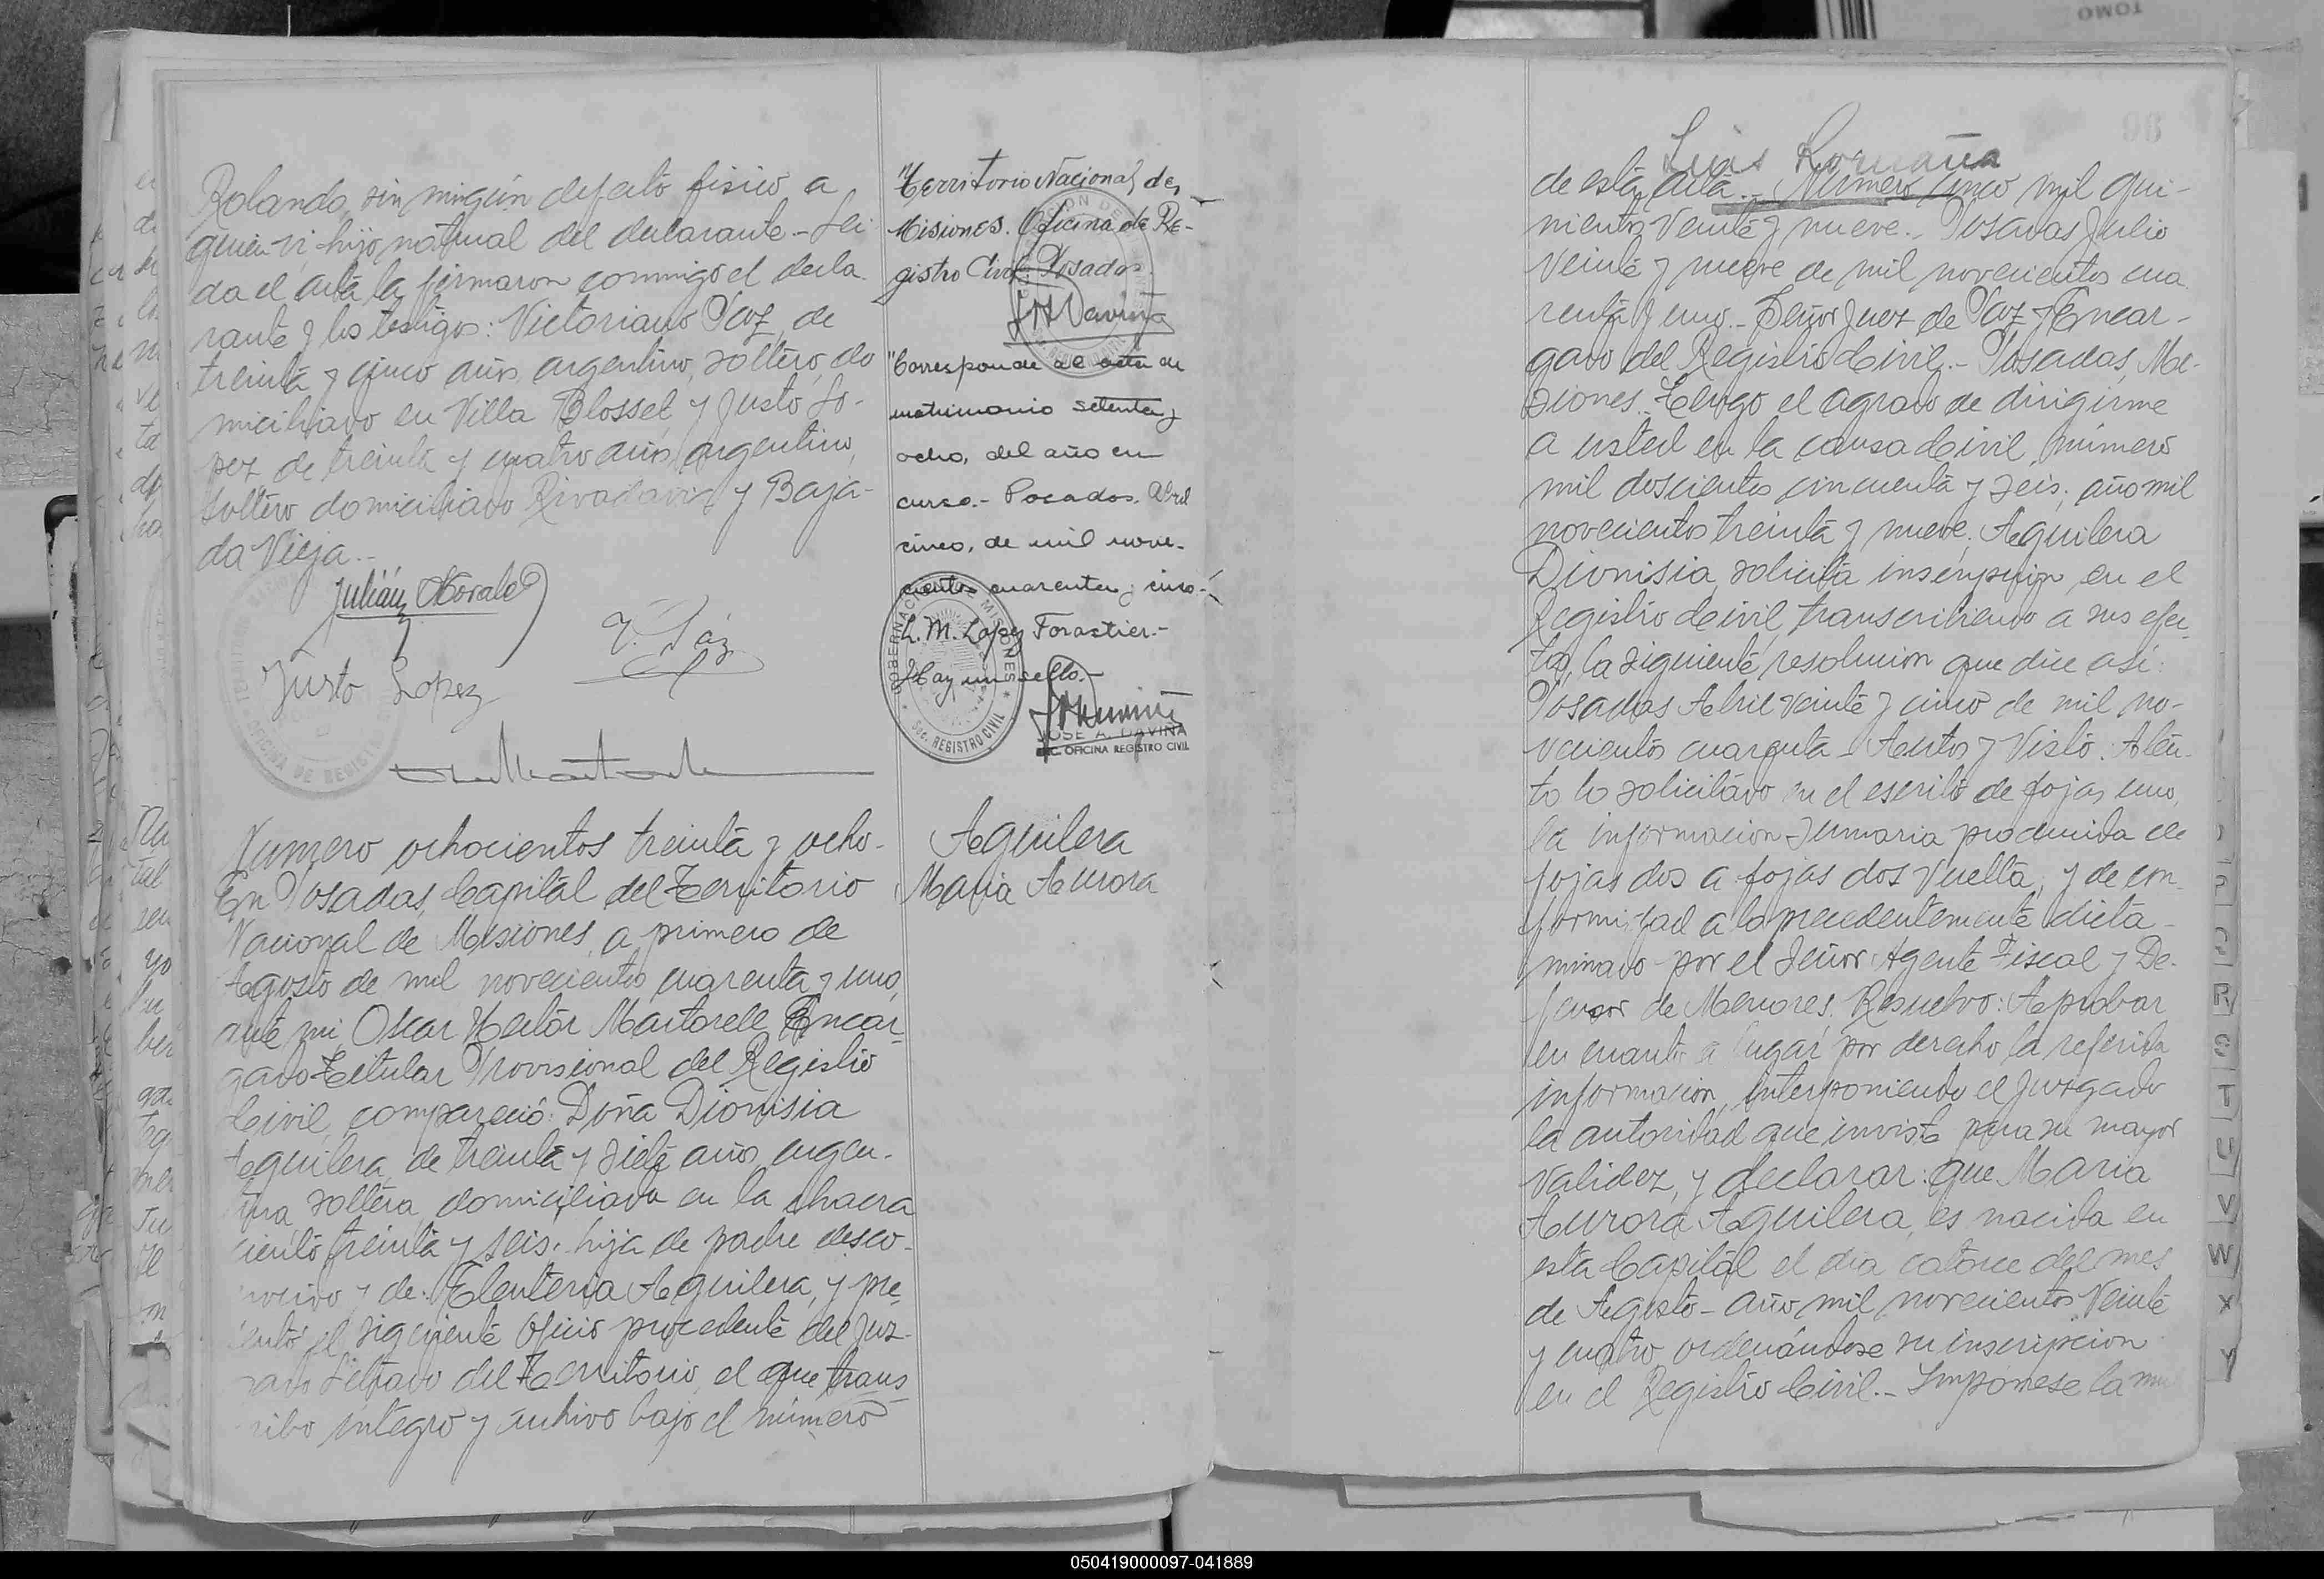 Rolando, sin ningún defecto fisico a
quien vi hijo natural del declarante - Lei
da el acta la firmaron conmigo el decla
rante y los testigos: Victoriano Paz, de
treinta y cinco años, argentino, soltero, do
miciliado en Villa Blosset y Justo Lo-
pez, de treinta y cuatro años, argentino,
soltero domiciliado Rivadavia y Baja-
da Vieja.-
Julián Morales
V. Páz
Justo Lopez
"Territorio Nacional de
Misiones. Oficina de Re-
gistro Civil. Posadas.
Corresponde al acta de
matrimonio setenta y
ocho, del año en
curso.- Posadas. Abril
cinco, de mil nove-
cientos cuarenta y cinco.-
L. M. Lopez Forastier.-
Hay un sello.-
GOBERNACION DE MISIONES
SEC. REGISTRO CIVIL
JOSE A. DAVIÑA
OFICINA REGISTRO CIVIL
OFICINA DE REGISTRO
Numero ochocientos treinta y ocho-
En Posadas, Capital del Territorio
Nacional de Misiones, a primero de
Agosto de mil novecientos cuarenta y uno,
ante mi, Oscar Hector Martorell Encar
gado Titular Provisional del Registro
Civil, compareció: Doña Dionisia
Aguilera, de treinta y siete años, argen-
tina, soltera, domiciliada en la chacra
ciento treinta y seis, hija de padre desco-
nocido y de Eleuteria Aguilera, y pre
sentó el siguiente Oficio procedente del Juz-
gado Letrado del Territorio, el que trans
cribo integro y archivo bajo el número
Aguilera
Maria Aurora
98
Luis Romaña
de esta acta.- Número cinco mil qui-
nientos veinte y nueve.- Posadas Julio
veinte y nueve de mil novecientos cua
renta y uno.- Señor Juez de Paz y Encar-
gado del Registro Civil.- Posadas, Mi-
siones.- Tengo el agrado de dirigirme
a usted en la causa Civil, número
mil doscientos cincuenta y seis, año mil
novecientos treinta y nueve, Aguilera
Dionisia, solicita inscripcion en el
Registro Civil, transcribiendo a sus efec
tos, la siguiente resolucion que dice asi:
Posadas Abril veinte y cinco de mil no-
vecientos cuarenta - Autos y Visto: Aten-
to lo solicitado en el escrito de fojas uno,
la informacion sumaria producida de
fojas dos a fojas dos vuelta, y de con
formidad a lo precedentemente dicta-
minado por el Señor Agente Fiscal y De-
fensor de Menores. Resuelvo: Aprobar
en cuanto a lugar por derecho la referida
informacion, interponiendo el Juzgado
la autoridad que inviste para su mayor
validez, y declarar: que Maria
Aurora Aguilera, es nacida en
esta Capital el dia catorce del mes
de Agosto - año mil novecientos veinte
y cuatro ordenándose su inscripcion
en el Registro Civil.- Imponese la mu
P
Q
R
S
T
U
V
W
X
Y
TOMO
050419000097-041889